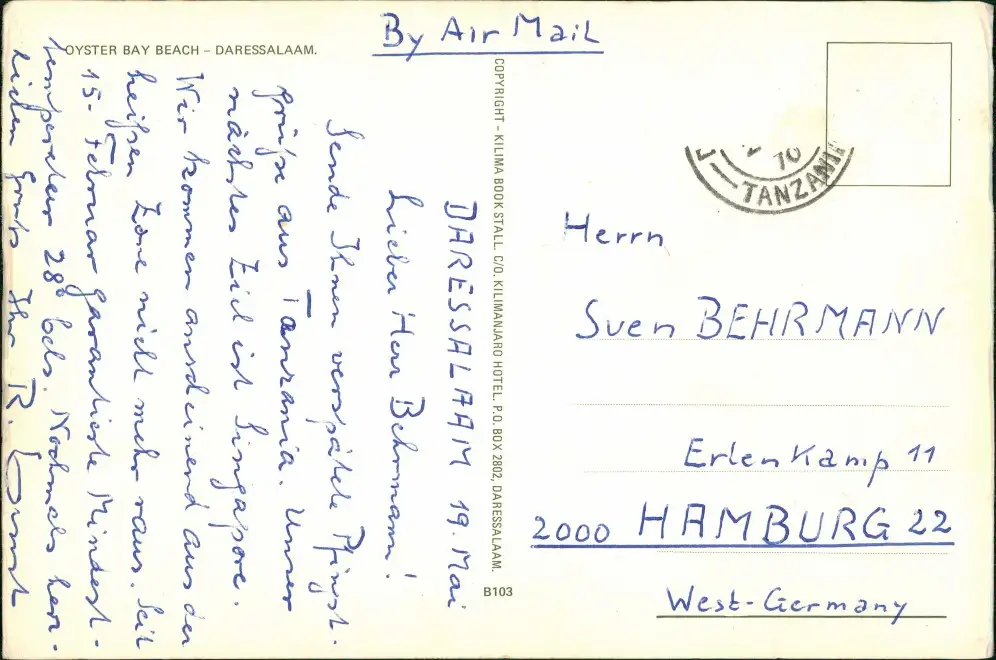 OYSTER BAY BEACH – DARESSALAAM.
By Air Mail
DARESSALAAM 19. Mai
Lieber Herr Behrmann!
Sende Ihnen verspätete Pfingst-
grüße aus Tanzania. Unser
nächstes Ziel ist Singapore.
Wir kommen anscheinend aus der
heißen Zone nicht mehr raus. Seit
15. Februar garantierte Mindest-
temperatur 28° Cels. Nochmals herz-
lichen Ihr R.
COPYRIGHT – KILIMA BOOK STALL. C/O. KILIMANJARO HOTEL. P.O. BOX 2802, DARESSALAAM.
B103
70
TANZANI
Herrn
Sven BEHRMANN
Erlenkamp 11
2000 HAMBURG 22
West-Germany